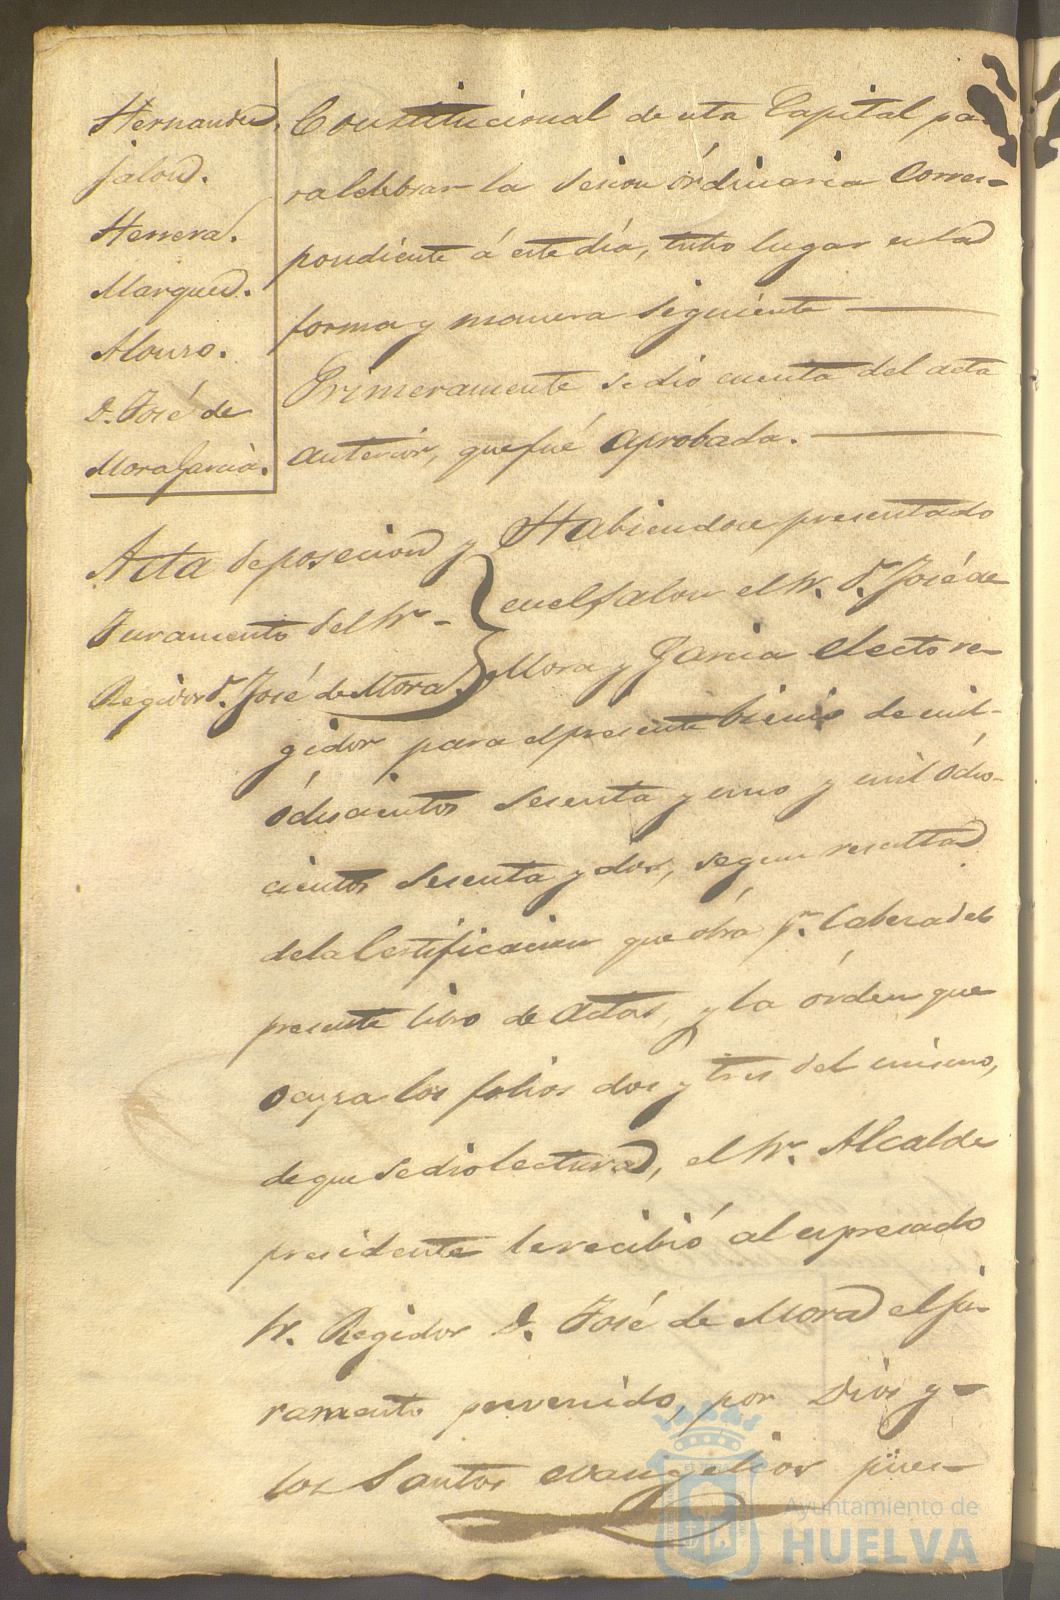 Hernandez.
Jalon.
Herrera.
Marquez.
Alonso.
D. José de
Mora Garcia.
Constitucional de esta Capital pa-
ra celebrar la sesion órdinaria corres-
pondiente á este dia, tubo lugar en la
forma y manera siguiente
Primeramente se dio cuenta del acta
anterior, que fué aprobada.
Acta de posecion y
Juramento del Sr
Regidor D. José de Mora.
Habiendose presentado
en el salon el Sr. D. José de
Mora y Garcia electo re-
gidor para el presente bienio de mil-
óchocientos sesenta y uno y mil ócho-
cientos sesenta y dos, segun resulta
de la Certificacion que obra pr. Cabeza del
presente libro de actas, y la órden que
ocupa los folios dos y tres del mismo,
de que se dio lectura, el Sr. Alcalde
presidente le recibió al espresado
Sr. Regidor D. José de Mora el ju-
ramento prevenido, por Dios y
los Santos evangelios pues-
Ayuntamiento de
HUELVA